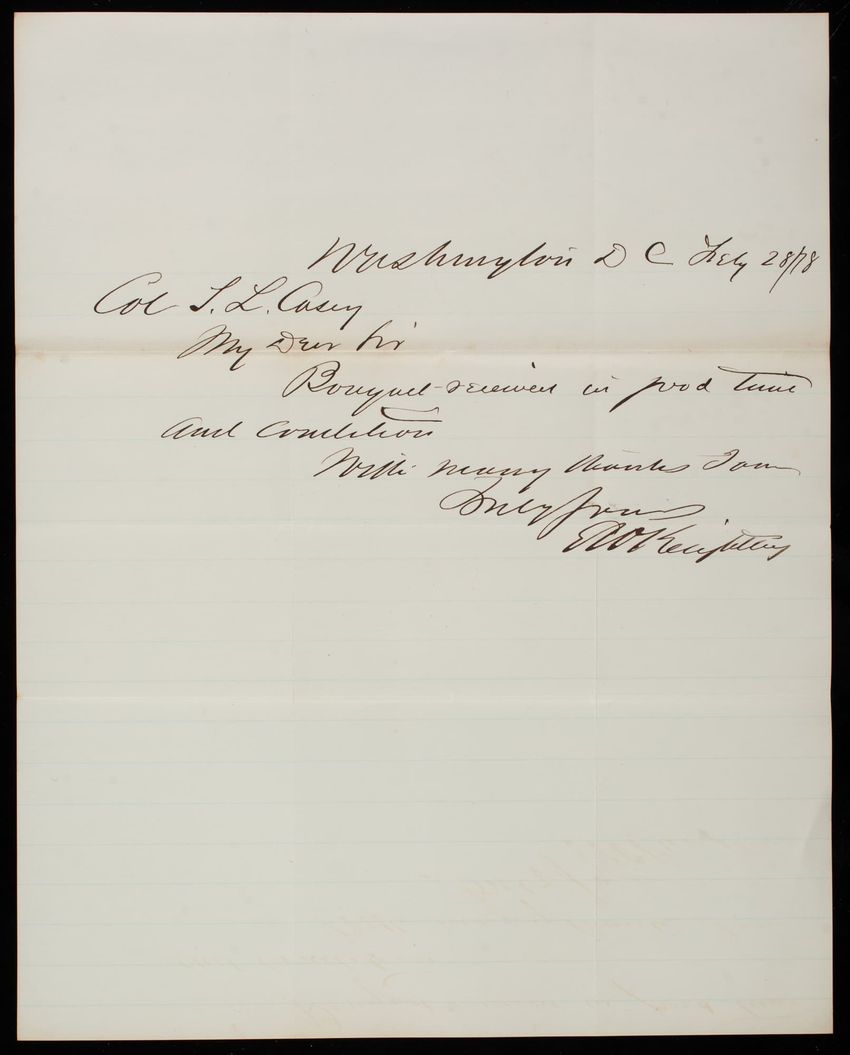 Washington D C Feby 28/78
Col T. L. Casey
My Dear Sir
Bouquet received in good time
and condition
With many thanks I am
Truly Yours